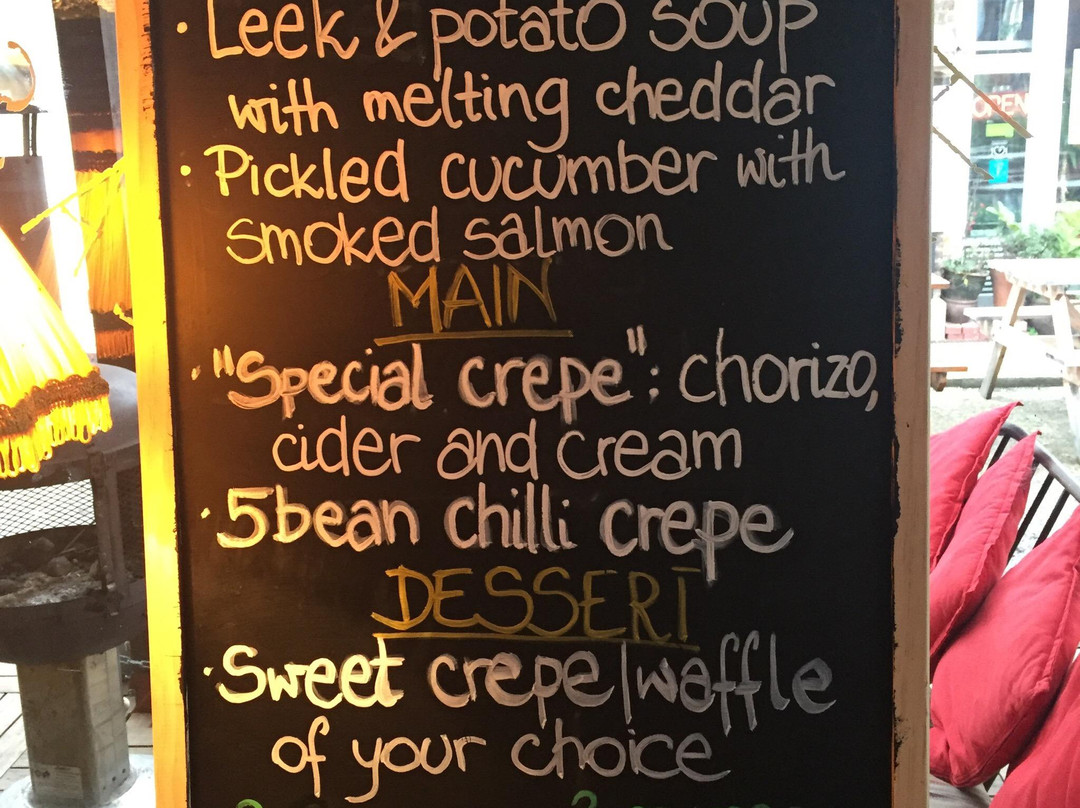 • Leek & potato soup
with melting cheddar
• Pickled cucumber with
smoked salmon
MAIN
• "Special crepe": chorizo,
cider and cream
• 5bean chilli crepe
DESSERT
• Sweet crepe/waffle
of your choice
OPEN